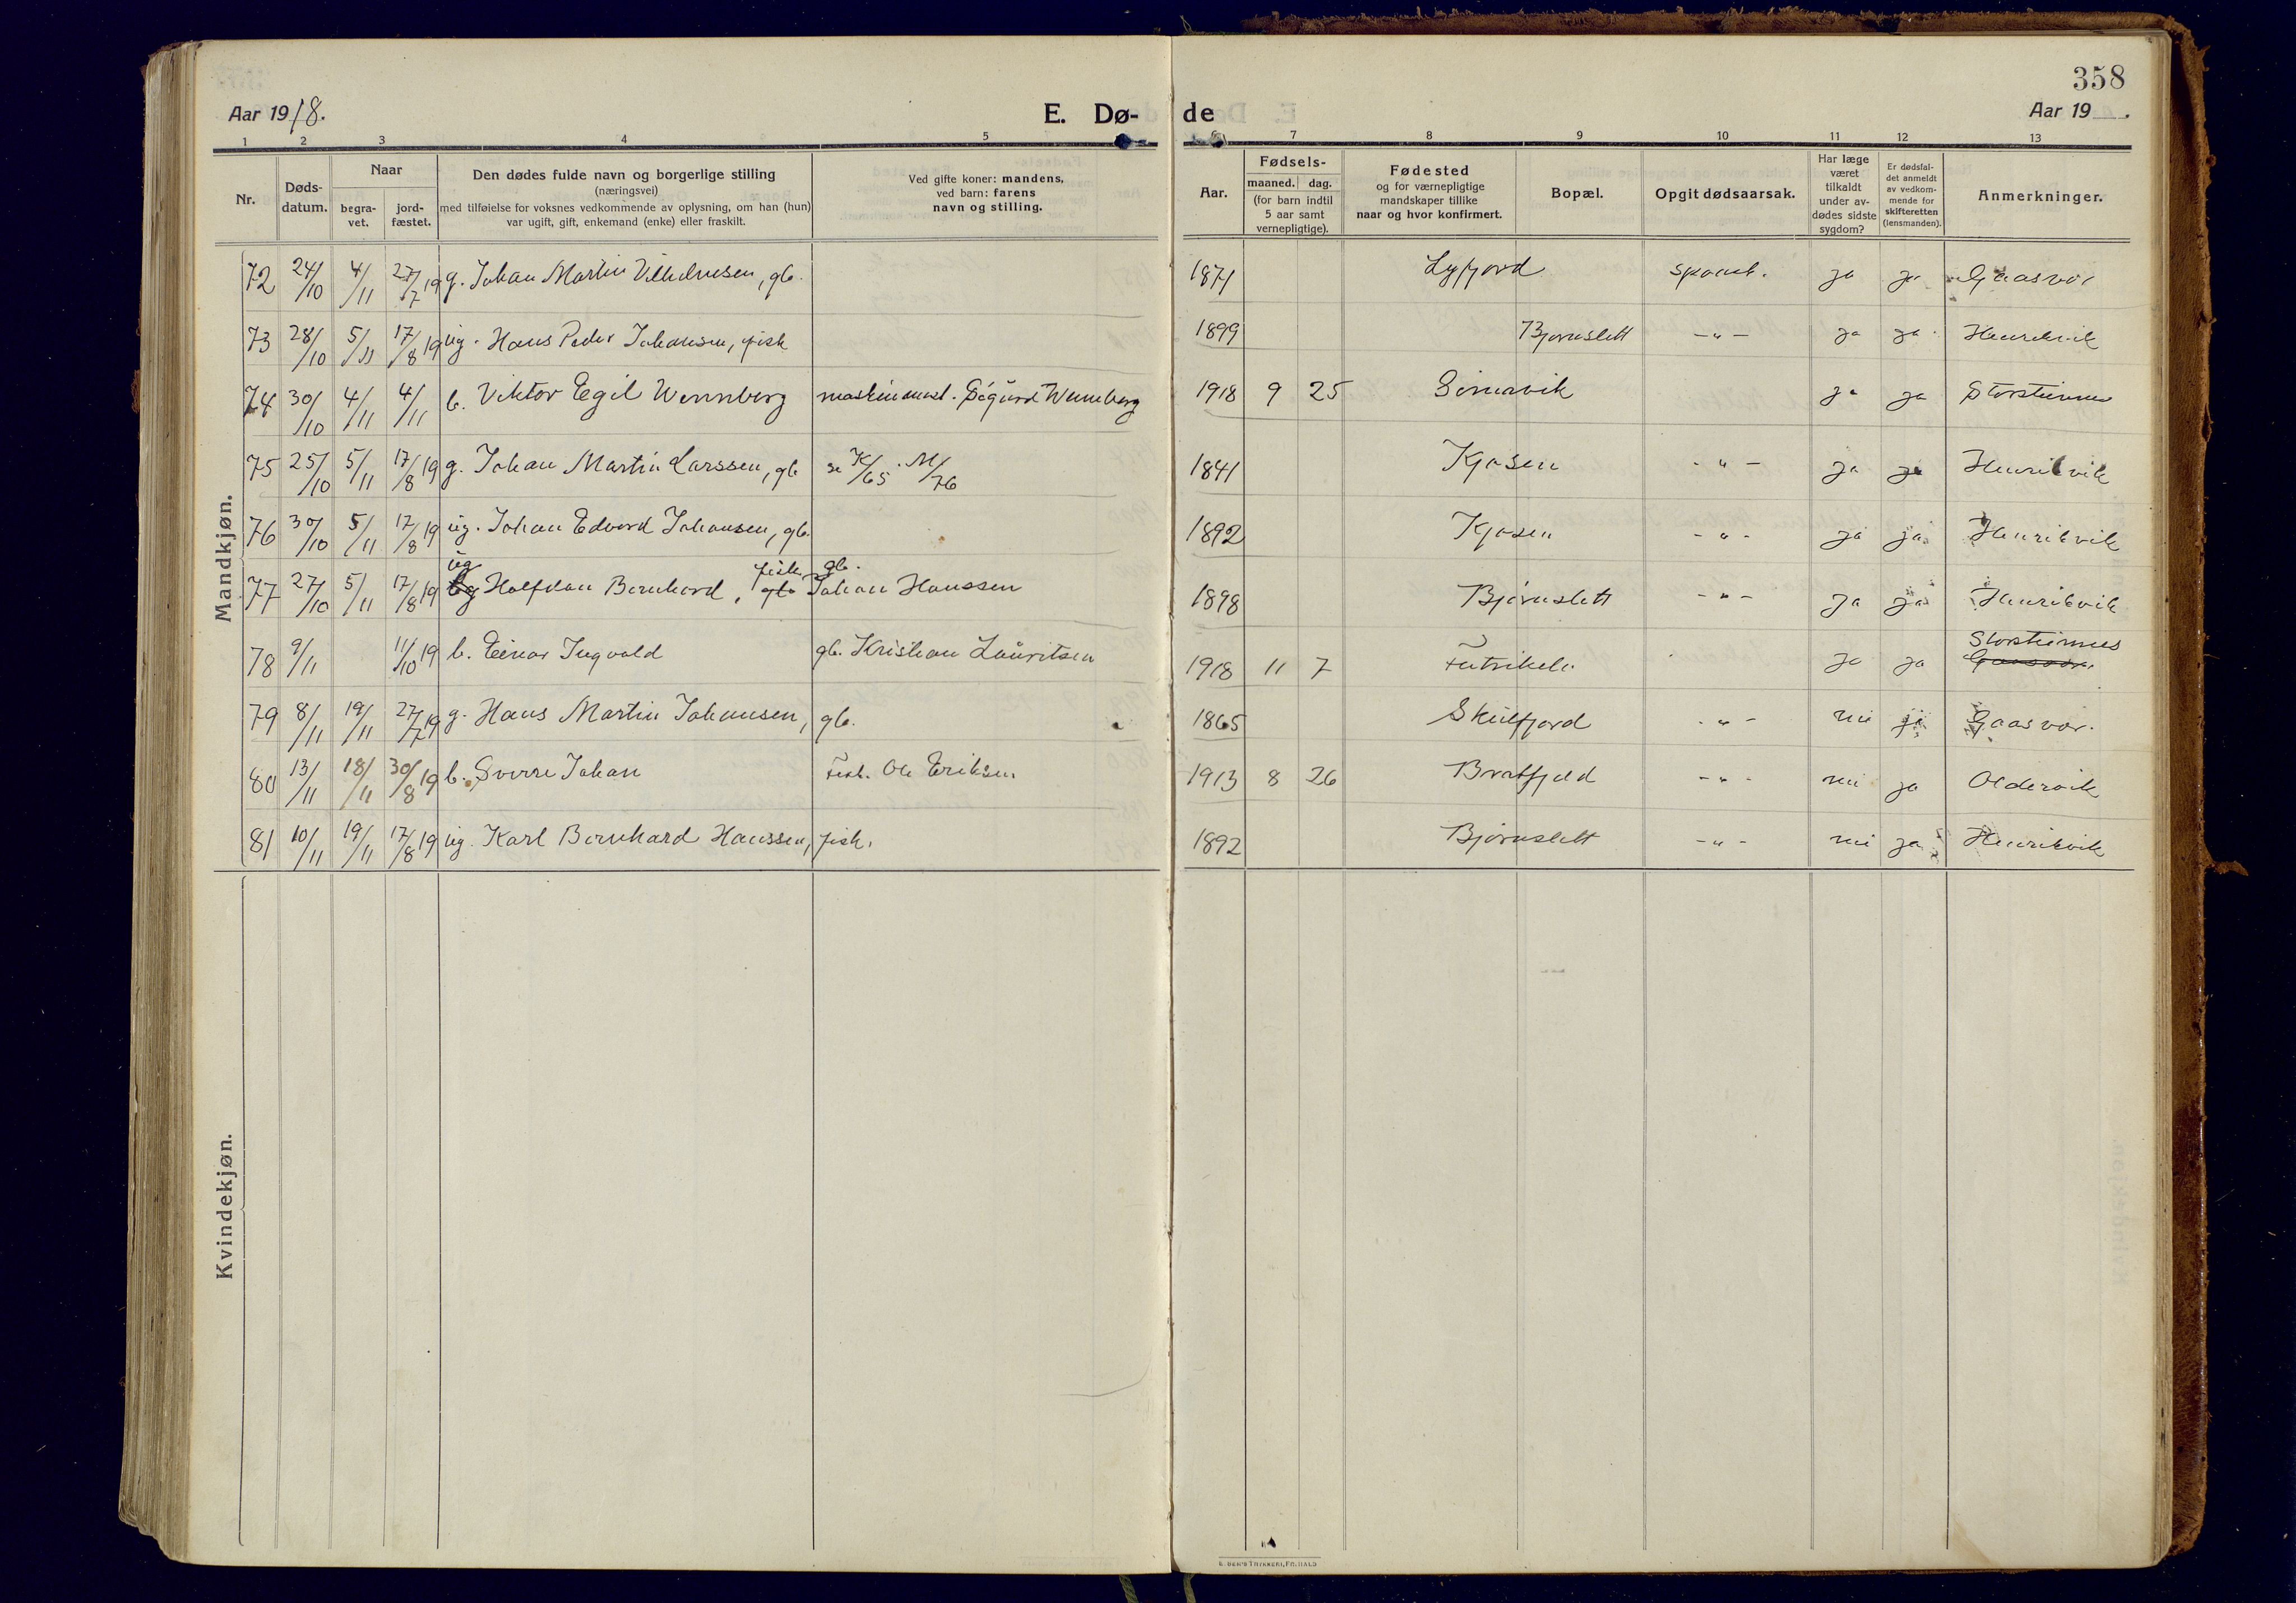 358
Aar 1918. E. Dø- de Aar 19 .
1 2 3 4 5 6 7 8 9 10 11 12 13
Nr. Døds-datum. Naar begra-vet. jord-fæstet. Den dødes fulde navn og borgerlige stilling (næringsvei) med tilføielse for voksnes vedkommende av oplysning, om han (hun) var ugift, gift, enkemand (enke) eller fraskilt. Ved gifte koner: mandens, ved barn: farens navn og stilling. Aar. Fødsels- maaned. dag. (for barn indtil 5 aar samt vernepligtige). Fødested og for værnepligtige mandskaper tillike naar og hvor konfirmert. Bopæl. Opgit dødsaarsak. Har læge været tilkaldt under av-dødes sidste sygdom? Er dødsfal-det anmeldt av vedkom-mende for skifteretten (lensmanden). Anmerkninger.
Mandkjøn.
72 24/10 4/11 27/7 19 g. Johan Martin Vilhelmsen, gb. 1871 Lyfjord spansk. ja ja Gaasvær
73 28/10 5/11 17/8 19 ug. Hans Peder Johansen, fisk 1899 Bjørnslett -"- ja ja Henrikvik
74 30/10 4/11 4/11 b. Viktor Egil Wennberg maskinmest. Sigurd Wennberg 1918 9 25 Simavik ja ja Storsteinnes
75 25/10 5/11 17/8 19 g. Johan Martin Larssen, gb se K/65 . M/76 1841 Kjosen -"- ja ja Henrikvik
76 30/10 5/11 17/8 19 ug. Johan Edvard Johansen, gb. 1892 Kjosen -"- ja ja Henrikvik
77 27/10 5/11 17/8 19 ug Halfdan Bernhard, fisk. gb. Johan Hanssen 1898 Bjørnslett -"- ja ja Henrikvik
78 9/11 11/10 19 b. Einar Ingvald gb. Kristian Lauritsen 1918 11 7 Futrikelv ja ja Storsteinnes
79 8/11 19/11 27/7 19 g. Hans Martin Johansen, gb. 1865 Skulfjord -"- nei ja Gaasvær.
80 13/11 18/11 30/8 19 b. Sverre Johan Fisk. Ole Eriksen 1913 8 26 Bratfjeld -"- nei ja Oldervik
81 10/11 19/11 17/8 19 ug. Karl Bernhard Hanssen, fisk. 1892 Bjørnslett -"- nei ja Henrikvik
Kvindekjøn.